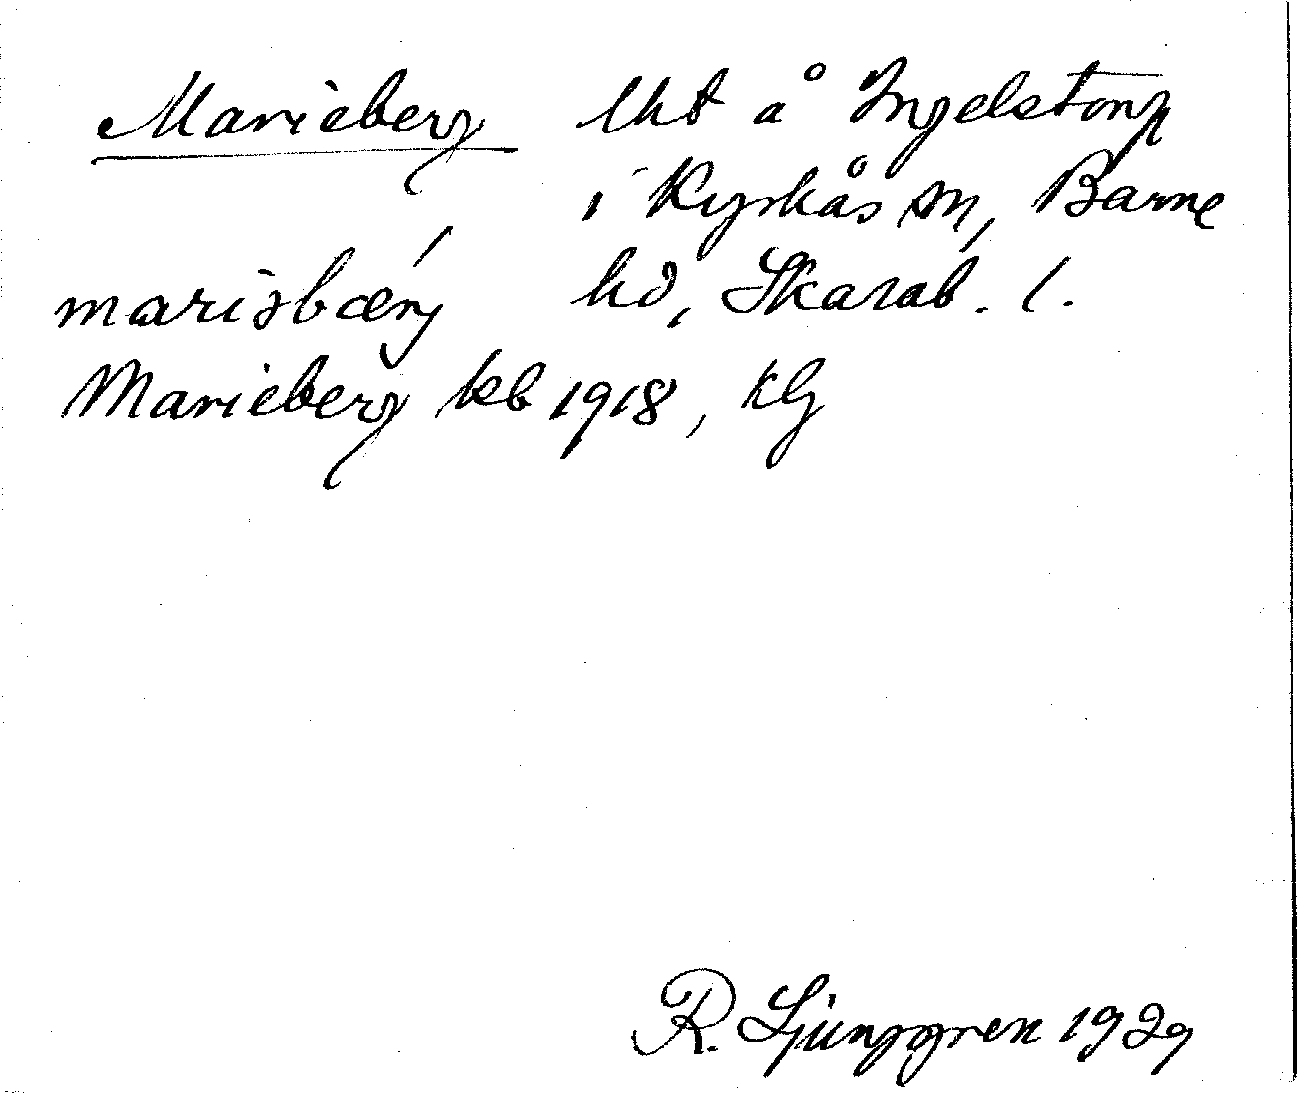 Marieberg lht å Ingelstorp
i Kyrkås sn, Barne
marisbærj hd, Skarab. l.
Marieberg kb 1918, klg
R. Ljunggren 1929